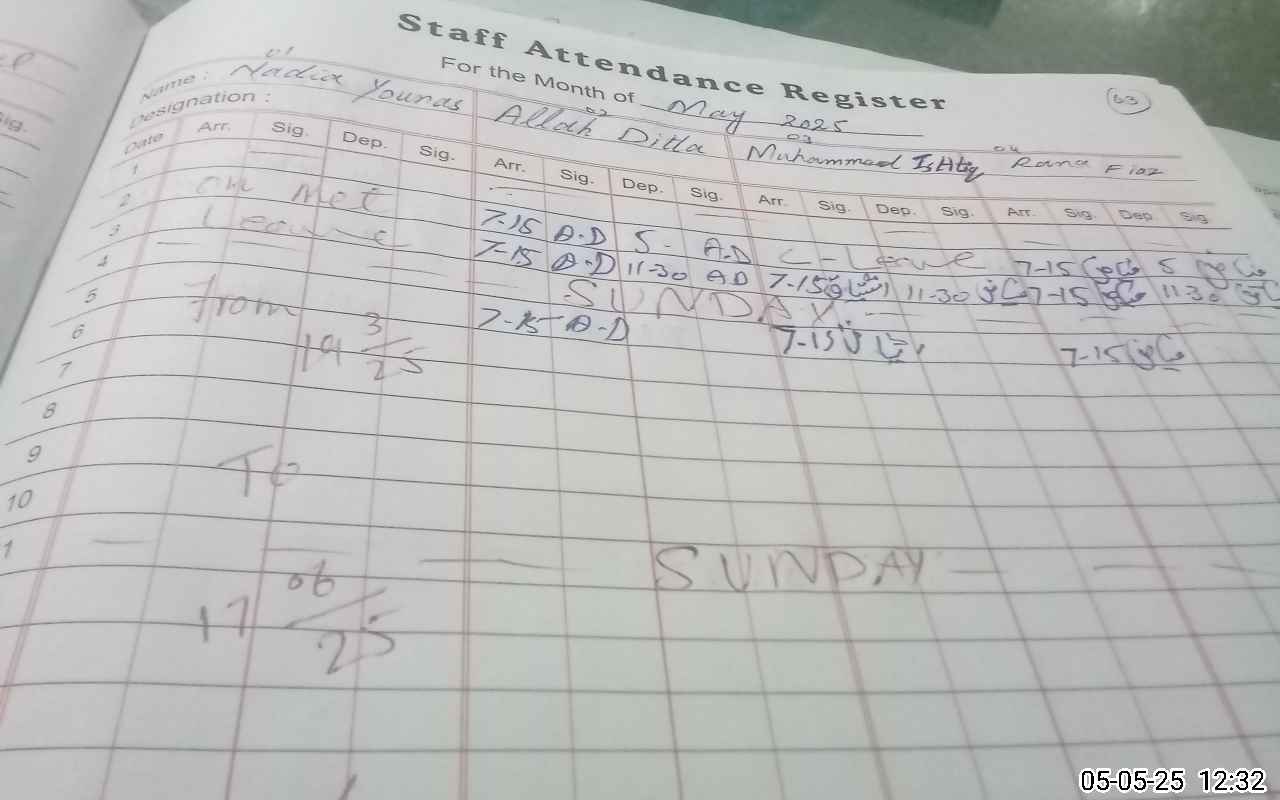 Staff Attendance Register
For the Month of May 2025
63
01 02 03 04
Name: Nadia Younas Allah Ditta Muhammad Ishtiq Rana Fiaz
Designation:
Date Arr. Sig. Dep. Sig. Arr. Sig. Dep. Sig. Arr. Sig. Dep. Sig. Arr. Sig. Dep. Sig
1
2 on Met 7-15 A-D 5- A-D C-Leave 7-15 5
3 Leave 7-15 A-D 11-30 AD 7-15 11-30 7-15 11-30
4 SUNDAY
5 from 7-15 A-D 7-15 7-15
6 19 3/25
7
8
9 To
10
1 SUNDAY
17 06/25
Sig.
05-05-25 12:32